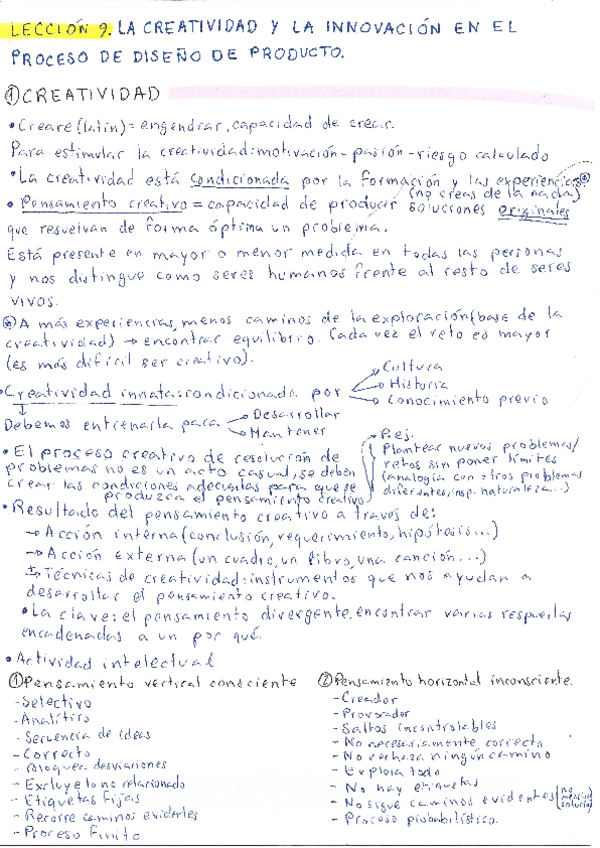 LECCIÓN 9. LA CREATIVIDAD Y LA INNOVACIÓN EN EL
PROCESO DE DISEÑO DE PRODUCTO.
① CREATIVIDAD
• Creare (latín) = engendrar, capacidad de crear.
Para estimular la creatividad: motivación - pasión - riesgo calculado
• La creatividad está condicionada por la formación y las experiencias
(no creas de la nada)
• Pensamiento creativo = capacidad de producir soluciones originales
que resuelvan de forma óptima un problema.
Está presente en mayor o menor medida en todas las personas
y nos distingue como seres humanos frente al resto de seres
vivos.
A más experiencias, menos caminos de la exploración (base de la
creatividad) → encontrar equilibrio. Cada vez el reto es mayor
(es más difícil ser creativo).
• Creatividad innata: condicionada por → Cultura
→ Historia
→ Conocimiento previo
Debemos entrenarla para → Desarrollar
→ Mantener
• El proceso creativo de resolución de
problemas no es un acto casual, se deben
crear las condiciones adecuadas para que se
produzca el pensamiento creativo
→ P.ej.
Plantear nuevos problemas/
retos sin poner límites
(analogía con otros problemas
diferentes, insp. naturaleza...)
• Resultado del pensamiento creativo a través de:
→ Acción interna (conclusión, requerimiento, hipótesis...)
→ Acción externa (un cuadro, un libro, una canción...)
→ Técnicas de creatividad: instrumentos que nos ayudan a
desarrollar el pensamiento creativo.
• La clave: el pensamiento divergente, encontrar varias respuestas
encadenadas a un por qué.
• Actividad intelectual
① Pensamiento vertical consciente
- Selectivo
- Analítico
- Secuencia de ideas
- Correcto
- Bloquear desviaciones
- Excluye lo no relacionado
- Etiquetas fijas
- Recorre caminos evidentes
- Proceso finito
② Pensamiento horizontal inconsciente.
- Creador
- Provocador
- Saltos incontrolables
- No necesariamente correcto
- No rechaza ningún camino
- Explora todo
- No hay etiquetas
- No sigue caminos evidentes
- Proceso probabilístico.